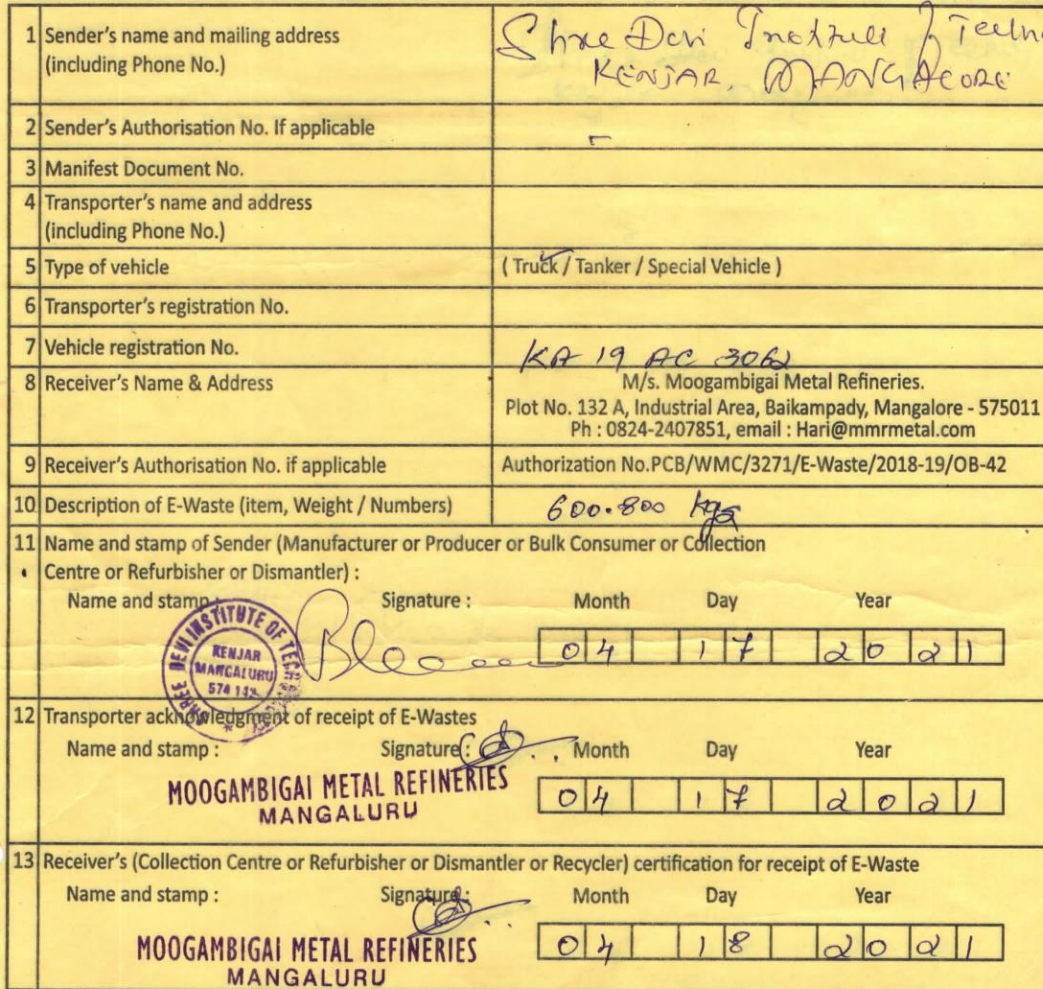 1 Sender's name and mailing address
(including Phone No.)
Shree Devi Institute of Techno
KENJAR, MANGALORE
2 Sender's Authorisation No. If applicable
-
3 Manifest Document No.
4 Transporter's name and address
(including Phone No.)
5 Type of vehicle
( Truck / Tanker / Special Vehicle )
6 Transporter's registration No.
7 Vehicle registration No.
KA 19 AC 3062
8 Receiver's Name & Address
M/s. Moogambigai Metal Refineries.
Plot No. 132 A, Industrial Area, Baikampady, Mangalore - 575011
Ph : 0824-2407851, email : Hari@mmrmetal.com
9 Receiver's Authorisation No. if applicable
Authorization No.PCB/WMC/3271/E-Waste/2018-19/OB-42
10 Description of E-Waste (item, Weight / Numbers)
600.800 kgs
11 Name and stamp of Sender (Manufacturer or Producer or Bulk Consumer or Collection
Centre or Refurbisher or Dismantler) :
Name and stamp : Signature : Month Day Year
SHREE DEVI INSTITUTE OF TECHNOLOGY
KENJAR
MANGALURU
04 17 2021
12 Transporter acknowledgment of receipt of E-Wastes
Name and stamp : Signature : Month Day Year
MOOGAMBIGAI METAL REFINERIES
MANGALURU
04 17 2021
13 Receiver's (Collection Centre or Refurbisher or Dismantler or Recycler) certification for receipt of E-Waste
Name and stamp : Signature : Month Day Year
MOOGAMBIGAI METAL REFINERIES
MANGALURU
04 18 2021